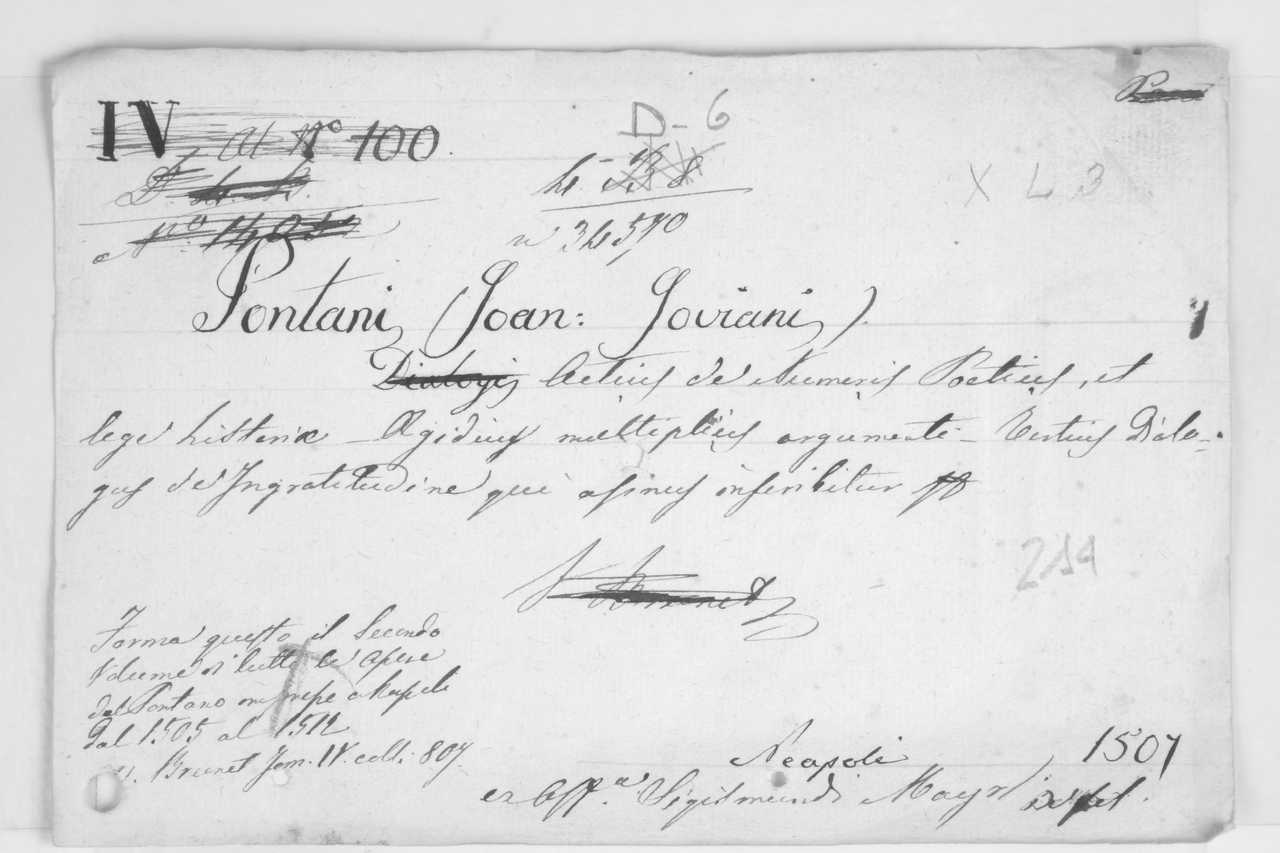 IV All N.° 100.
D - 6
X L 3
n° 34570
Pontani (Joan: Joviani).
Dialogi Actius de Numeris Poeticis, et
lege historiæ - Ægidius multiplicis argumenti - Tertius Dialo-
gus de Ingratitudine qui asinus inscribitur
214
Forma questo il Secondo
Volume di tutte le Opere
del Pontano impresse a Napoli
dal 1505 al 1512
V. Brunet Tom. IV. coll. 807.
Neapoli 1507
ex Off.ª Sigismundi Mayr